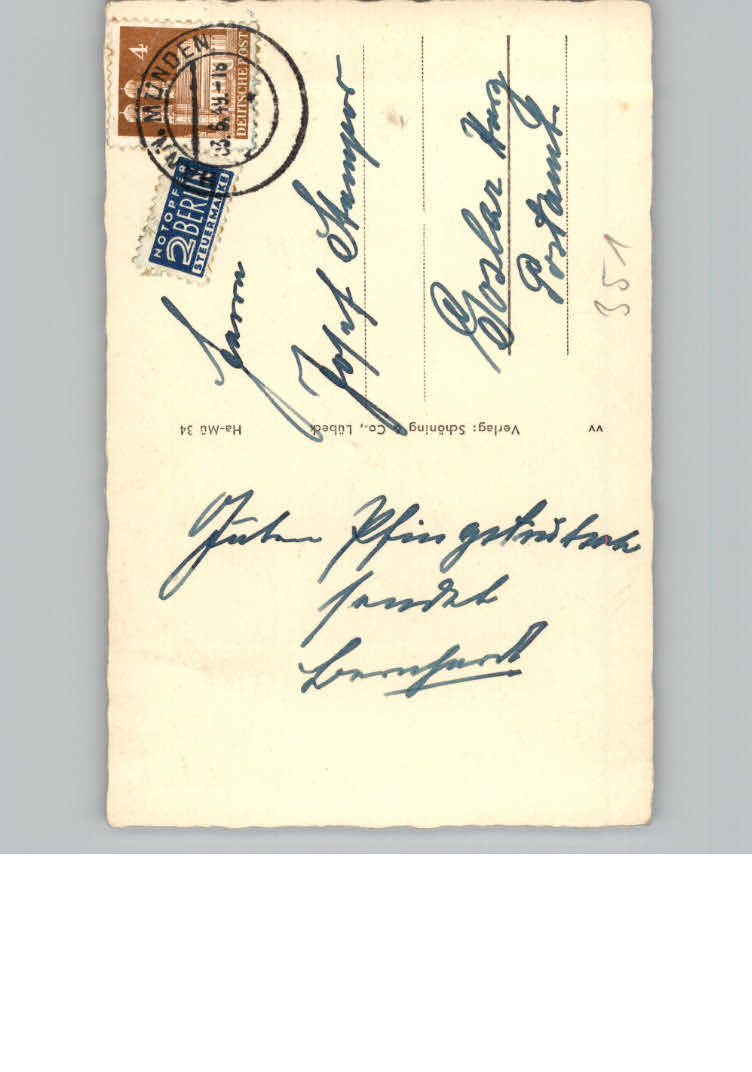 4
DEUTSCHE POST
NOTOPFER
2 BERLIN
STEUERMARKE
HANN. MÜNDEN
-3.6.49.-18
Herrn
Josef Stemper
Goslar Harz
Postamt.
351
vv Verlag: Schöning & Co., Lübeck Ha-Mü 34
Guten
sendet
Bernhardt